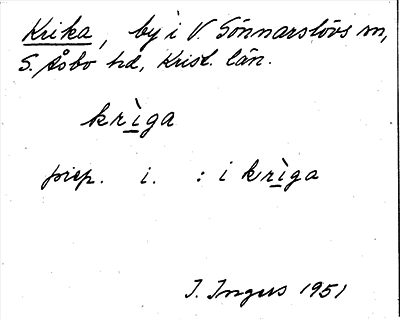 Krika, by i V. Sönnarslövs sn,
S. Åsbo hd, Krist. län.
krìga
prep. i. : i krìga
I. Ingers 1951